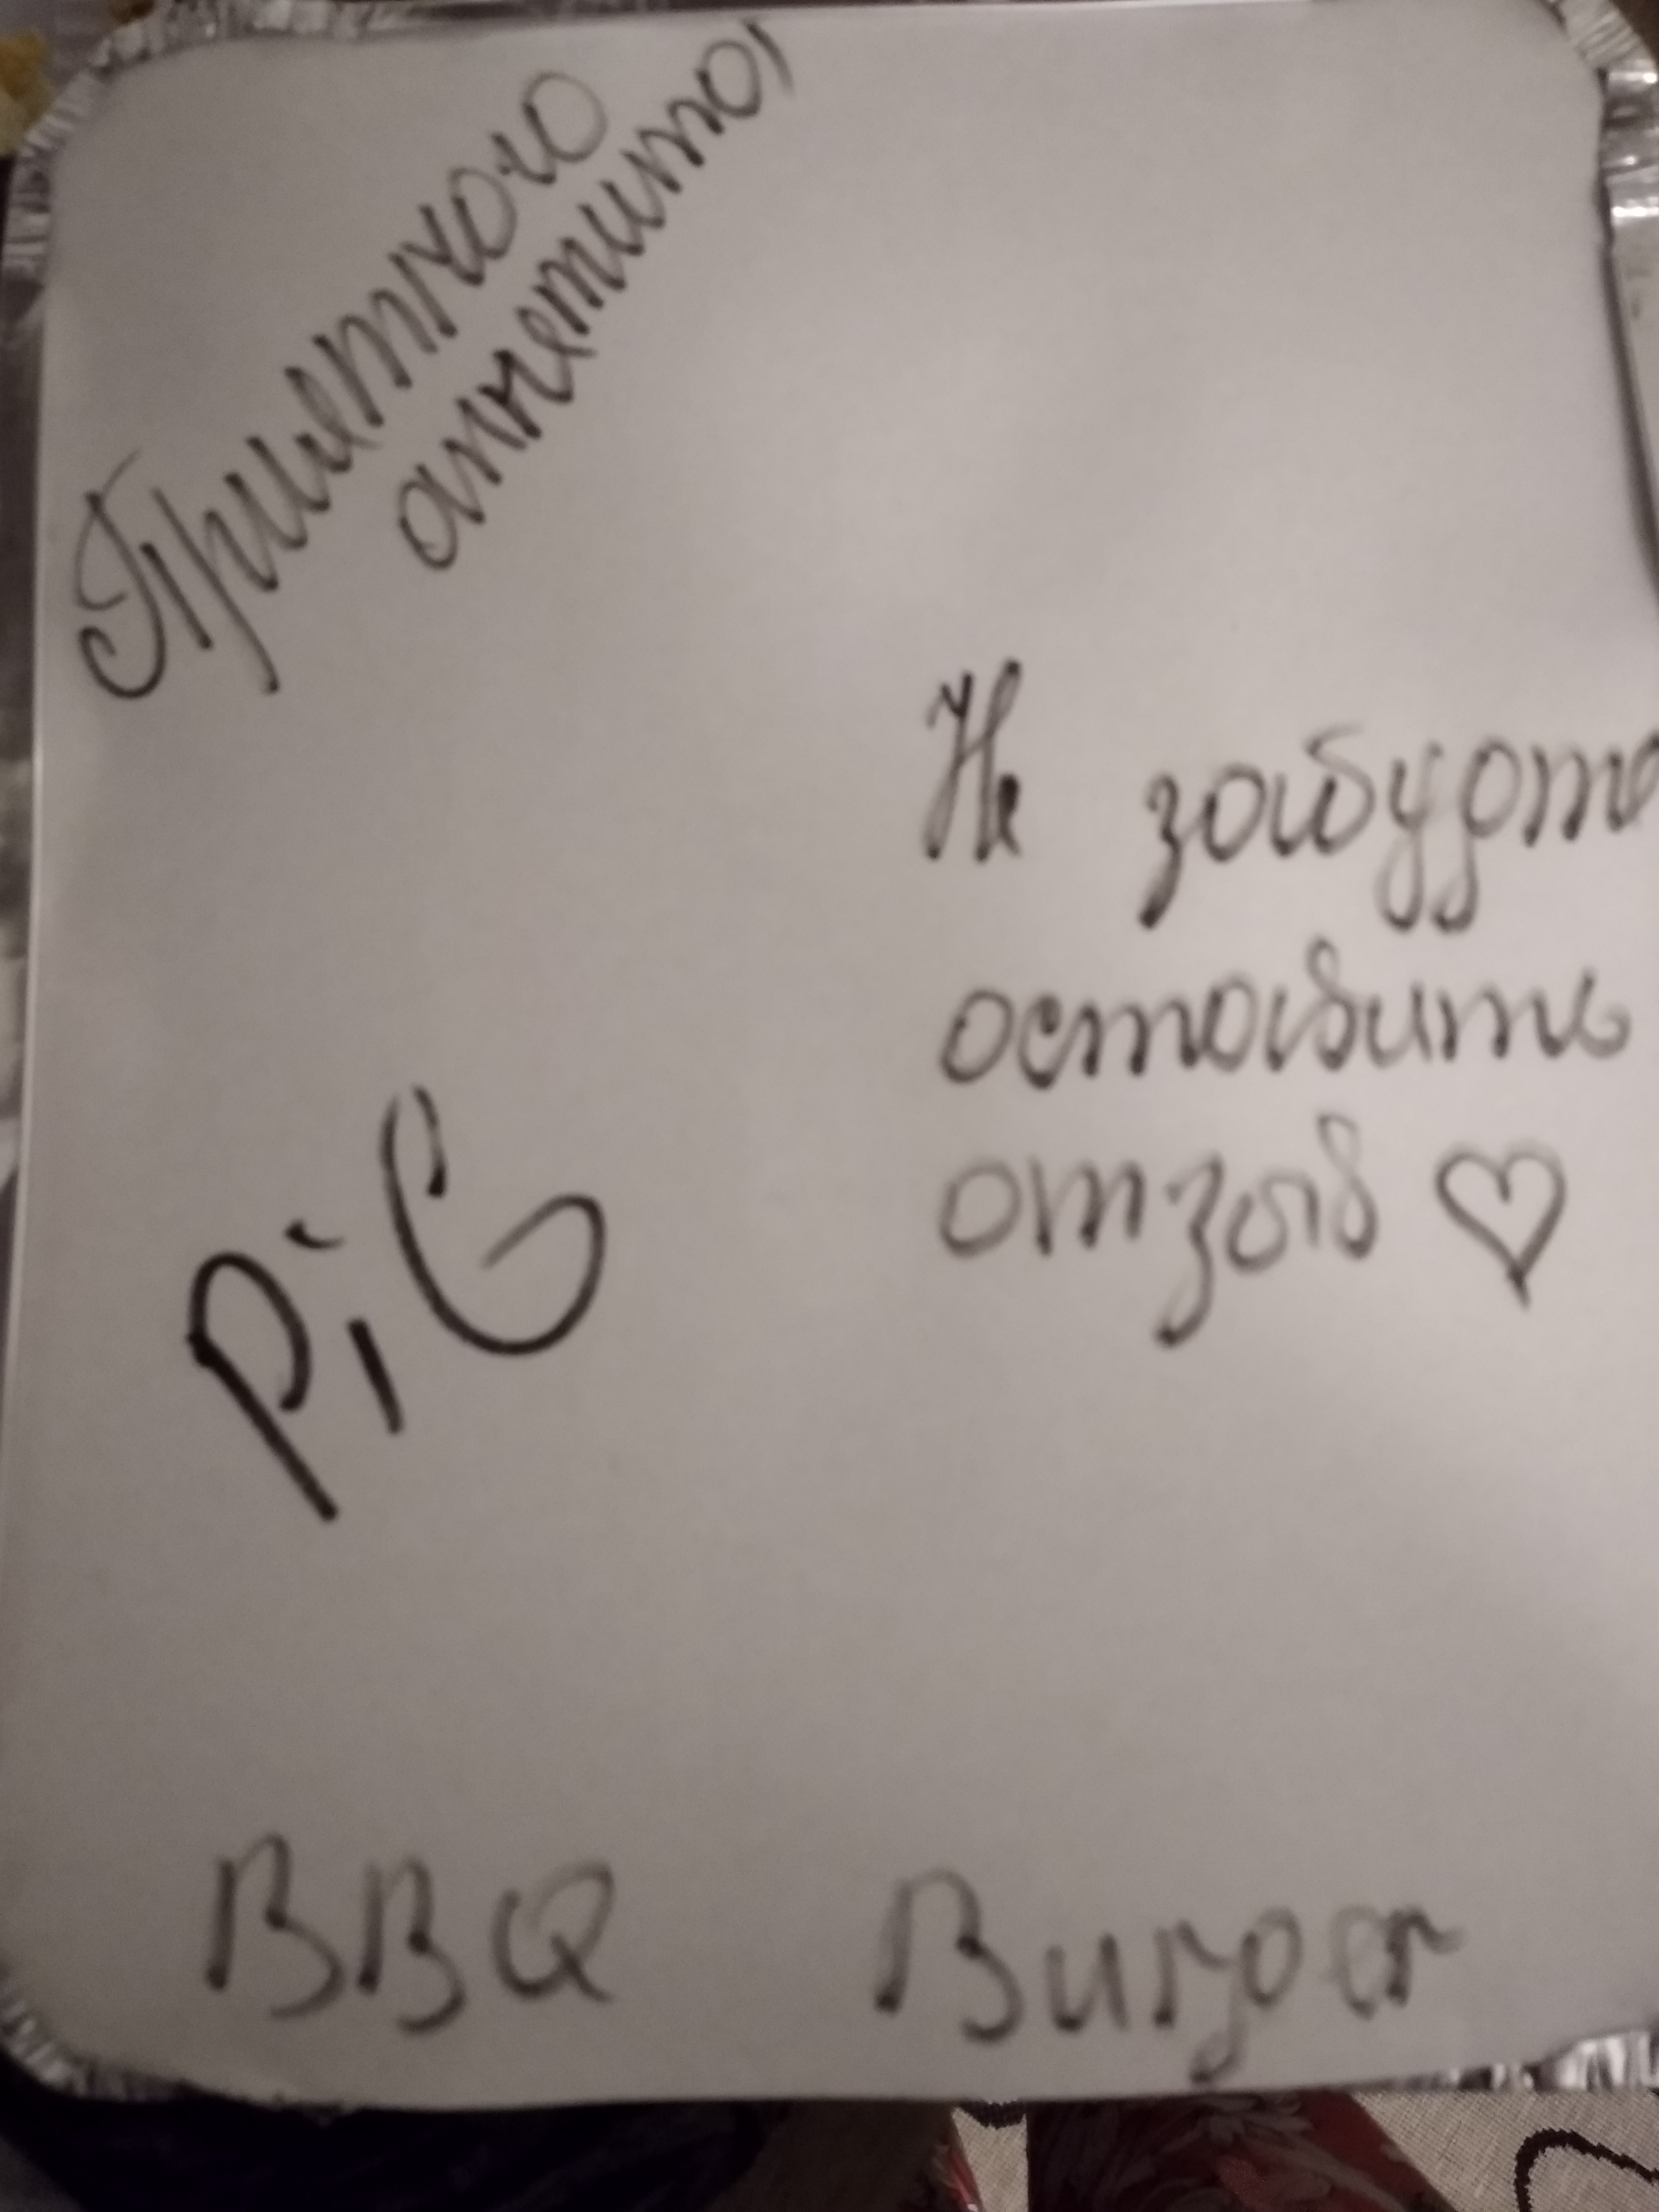 Приятного
аппетита!
Не забудьте
оставить
отзыв ♡
PiG
BBQ Burger